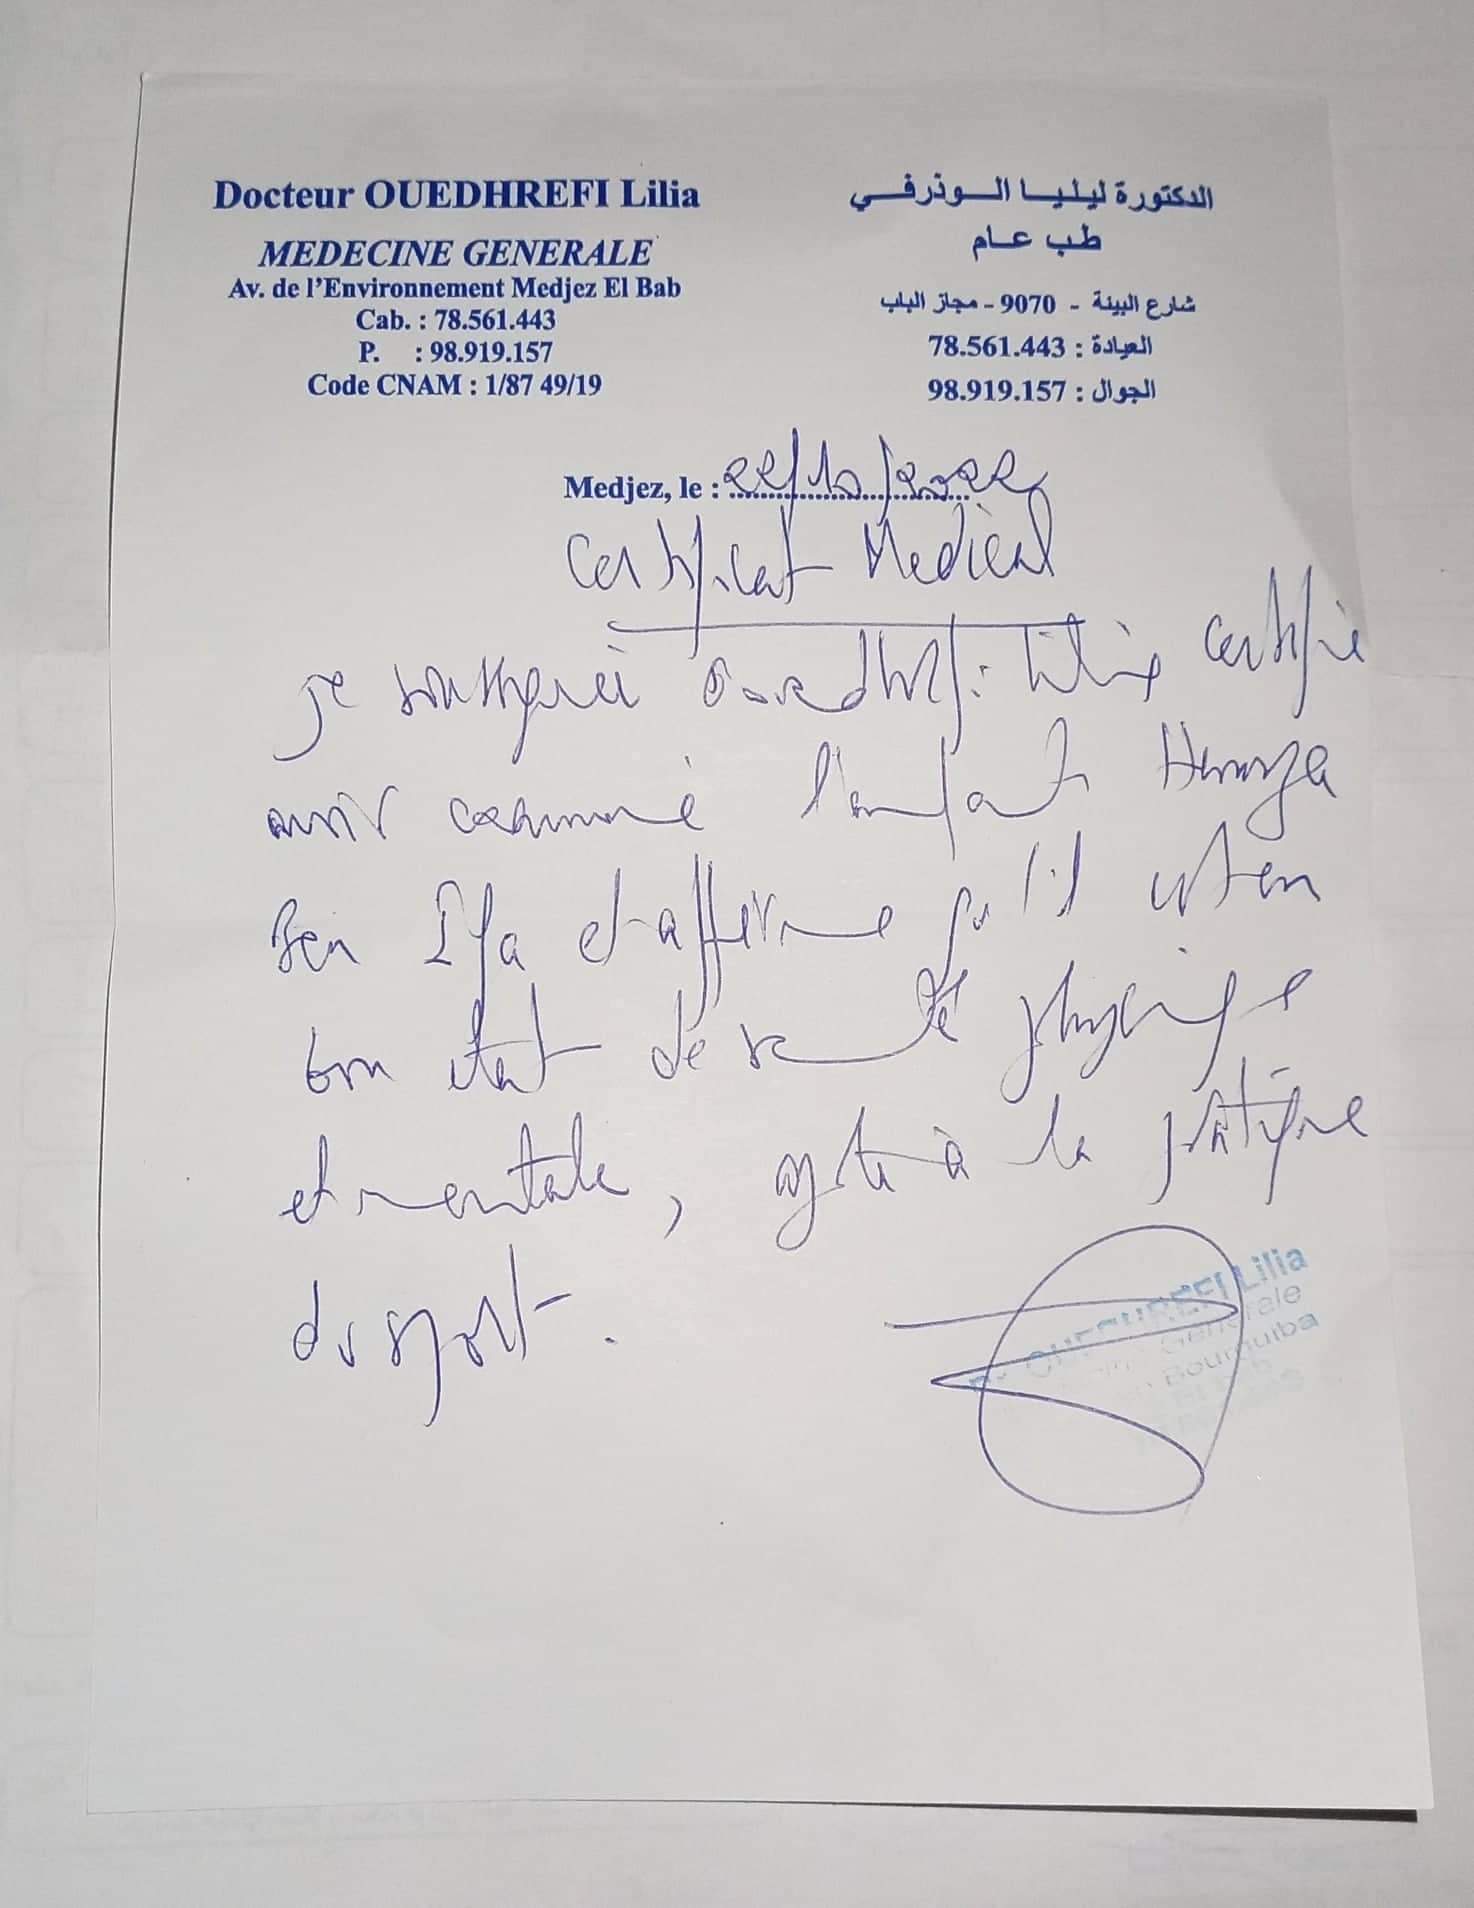 Docteur OUEDHREFI Lilia
MEDECINE GENERALE
Av. de l'Environnement Medjez El Bab
Cab. : 78.561.443
P. : 98.919.157
Code CNAM : 1/87 49/19
الدكتورة ليليا الوذرفي
طب عام
شارع البيئة - 9070 - مجاز الباب
العيادة : 78.561.443
الجوال : 98.919.157
Medjez, le : 22/10/2022
Certificat Medical
je soussignée Ouedhrefi Lilia certifie
avoir examiné l'enfant Hamza
Ben et affirme qu'il est en
bon état de santé physique
et mentale, apte à la pratique
du sport.
Dr OUEDHREFI Lilia
Générale
Bourguiba